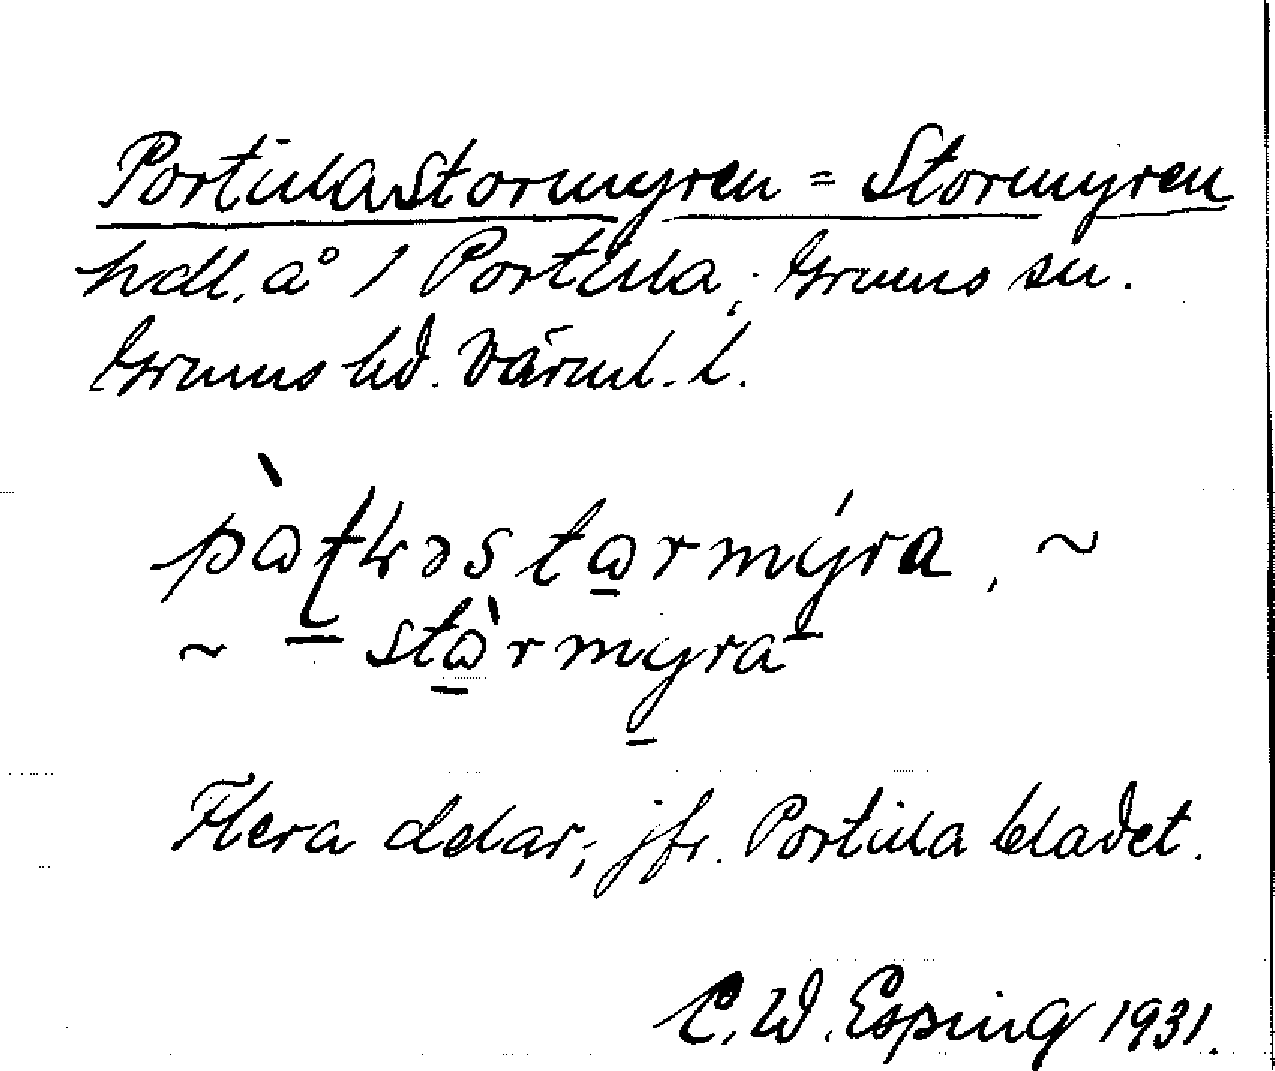 Portilastormyren = Stormyren
hdl. å 1 Portila, Grums sn.
Grums hd. Värml. l.
pàʈɭəstɷrmýra, ~
~ – stɷ̀rmyra
Flera delar; jfr. Portila bladet.
C. W. Esping 1931.